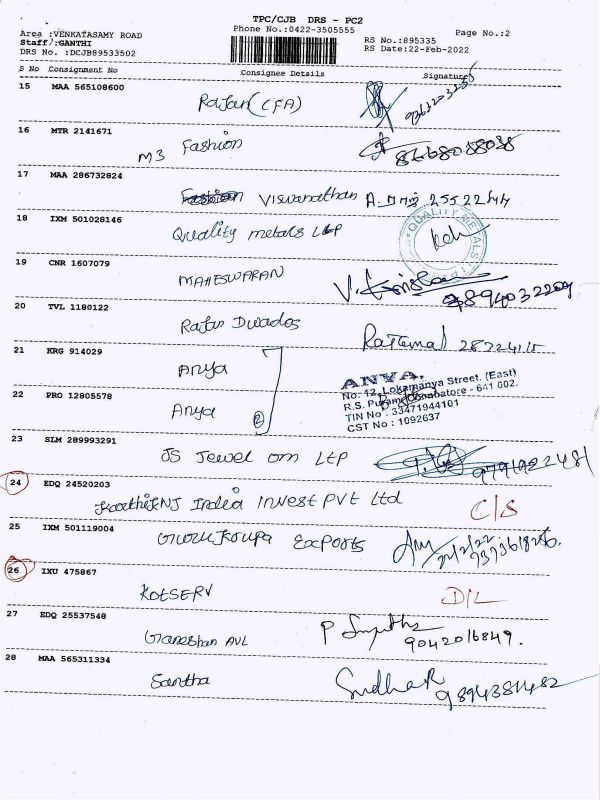 TPC/CJB DRS - PC2
Area :VENKATASAMY ROAD Phone No.:0422-3505555 Page No.:2
Staff :GANTHI RS No.:895335
DRS No. :DCJB89533502 RS Date:22-Feb-2022
S No Consignment No Consignee Details Signature
15 MAA 565108600
Rajan (CFA)
16 MTR 2141671
M3 Fashion 8668088038
17 MAA 286732824
Viswanathan A. 2552244
18 IXM 501028146
Quality metals LLP
QUALITY METALS
19 CNR 1607079
MAHESWARAN
20 TVL 1180122
Rajan Dwados
21 KRG 914029
Anya
ANYA.
No. 12, Lokamanya Street, (East)
22 PRO 12805578
R.S. Puram, Coimbatore - 641 002.
Anya (2)
TIN No : 33471944101
CST No : 1092637
23 SLM 289993291
JS Jewel om LLP 9791922481
24 EDQ 24520203
India Invest PVT Ltd C/S
25 IXM 501119004
Guru Krupa Exports
26 IXU 475867
KOESERV D/L
27 EDQ 25537548
Ganeshan AVL 9042016849.
28 MAA 565311334
Santha Sudhak 9894381482